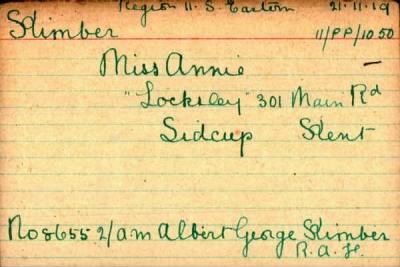 Region 11. S. Eastern 21.11.19
Kimber 11/PP/1050
Miss Annie –
"Locksley" 301 Main Rd
Sidcup Kent
No 8655 2/am Albert George Kimber
R.A.F.